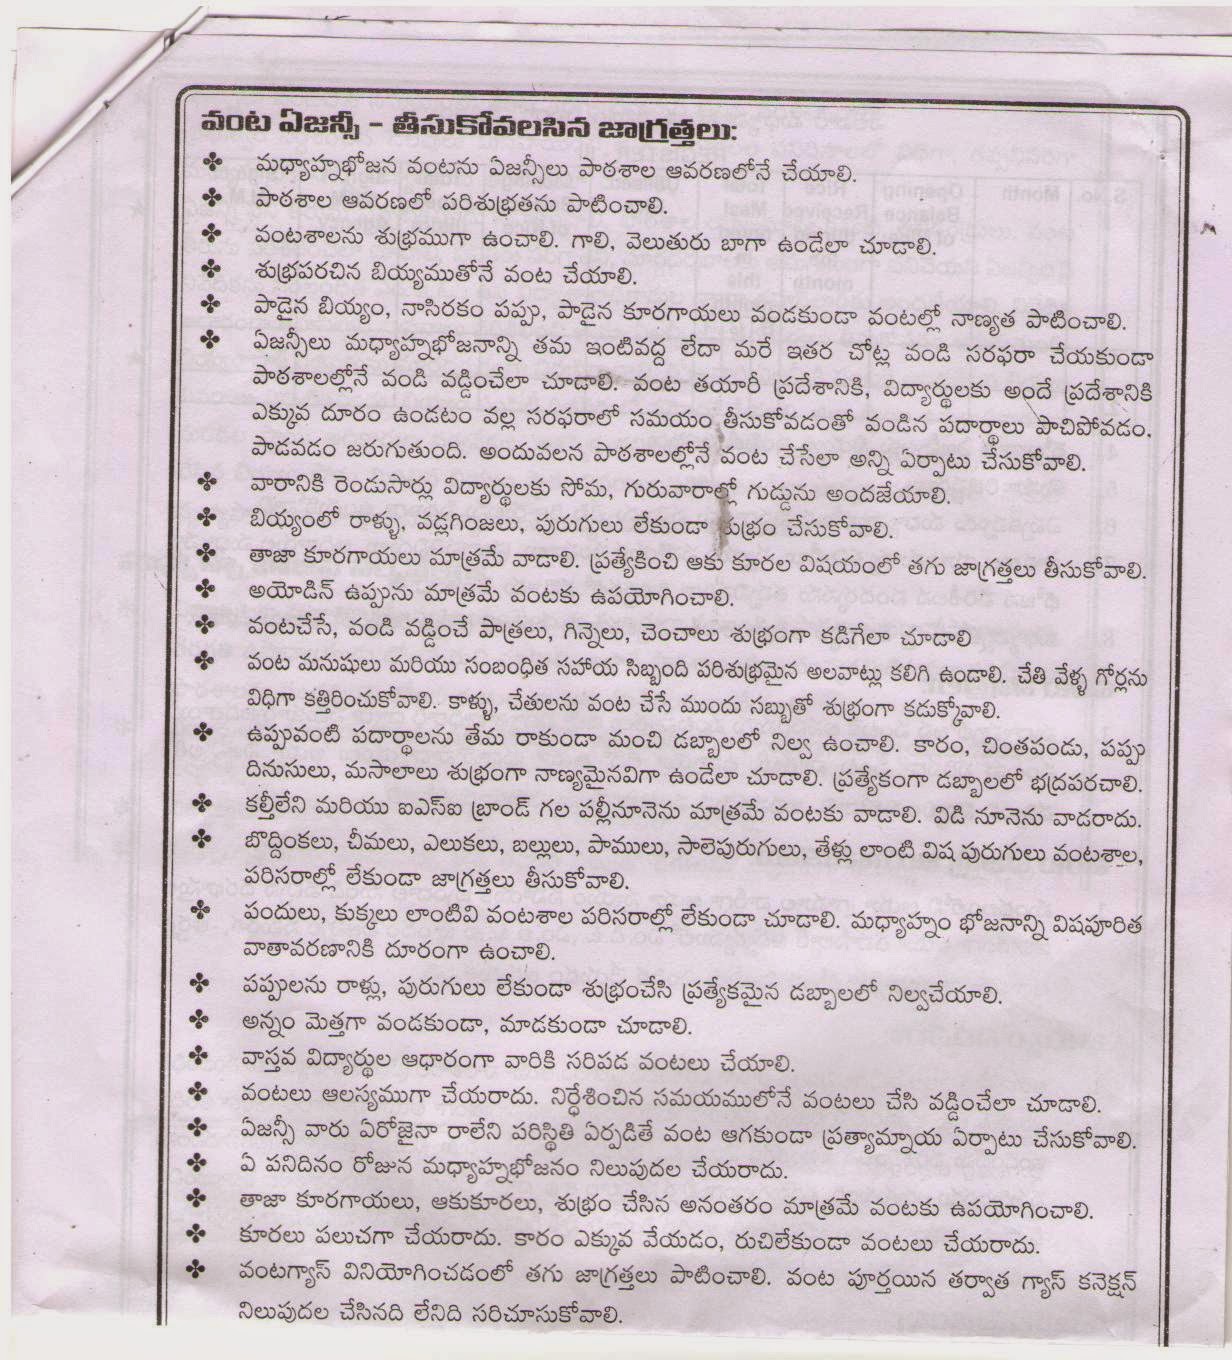 వంట ఏజన్సీ - తీసుకోవలసిన జాగ్రత్తలు:
❖ మధ్యాహ్నభోజన వంటను ఏజన్సీలు పాఠశాల ఆవరణలోనే చేయాలి.
❖ పాఠశాల ఆవరణలో పరిశుభ్రతను పాటించాలి.
❖ వంటశాలను శుభ్రముగా ఉంచాలి. గాలి, వెలుతురు బాగా ఉండేలా చూడాలి.
❖ శుభ్రపరచిన బియ్యముతోనే వంట చేయాలి.
❖ పాడైన బియ్యం, నాసిరకం పప్పు, పాడైన కూరగాయలు వండకుండా వంటల్లో నాణ్యత పాటించాలి.
❖ ఏజన్సీలు మధ్యాహ్నభోజనాన్ని తమ ఇంటివద్ద లేదా మరే ఇతర చోట్ల వండి సరఫరా చేయకుండా
పాఠశాలల్లోనే వండి వడ్డించేలా చూడాలి. వంట తయారీ ప్రదేశానికి, విద్యార్థులకు అందే ప్రదేశానికి
ఎక్కువ దూరం ఉండటం వల్ల సరఫరాలో సమయం తీసుకోవడంతో వండిన పదార్థాలు పాచిపోవడం,
పాడవడం జరుగుతుంది. అందువలన పాఠశాలల్లోనే వంట చేసేలా అన్ని ఏర్పాటు చేసుకోవాలి.
❖ వారానికి రెండుసార్లు విద్యార్థులకు సోమ, గురువారాల్లో గుడ్డును అందజేయాలి.
❖ బియ్యంలో రాళ్ళు, వడ్లగింజలు, పురుగులు లేకుండా శుభ్రం చేసుకోవాలి.
❖ తాజా కూరగాయలు మాత్రమే వాడాలి. ప్రత్యేకించి ఆకు కూరల విషయంలో తగు జాగ్రత్తలు తీసుకోవాలి.
❖ అయోడిన్ ఉప్పును మాత్రమే వంటకు ఉపయోగించాలి.
❖ వంటచేసే, వండి వడ్డించే పాత్రలు, గిన్నెలు, చెంచాలు శుభ్రంగా కడిగేలా చూడాలి
❖ వంట మనుషులు మరియు సంబంధిత సహాయ సిబ్బంది పరిశుభ్రమైన అలవాట్లు కలిగి ఉండాలి. చేతి వేళ్ళ గోర్లను
విధిగా కత్తిరించుకోవాలి. కాళ్ళు, చేతులను వంట చేసే ముందు సబ్బుతో శుభ్రంగా కడుక్కోవాలి.
❖ ఉప్పువంటి పదార్థాలను తేమ రాకుండా మంచి డబ్బాలలో నిల్వ ఉంచాలి. కారం, చింతపండు, పప్పు
దినుసులు, మసాలాలు శుభ్రంగా నాణ్యమైనవిగా ఉండేలా చూడాలి. ప్రత్యేకంగా డబ్బాలలో భద్రపరచాలి.
❖ కల్తీలేని మరియు ఐఎస్ఐ బ్రాండ్ గల పల్లీనూనెను మాత్రమే వంటకు వాడాలి. విడి నూనెను వాడరాదు.
❖ బొద్దింకలు, చీమలు, ఎలుకలు, బల్లులు, పాములు, సాలెపురుగులు, తేళ్లు లాంటి విష పురుగులు వంటశాల,
పరిసరాల్లో లేకుండా జాగ్రత్తలు తీసుకోవాలి.
❖ పందులు, కుక్కలు లాంటివి వంటశాల పరిసరాల్లో లేకుండా చూడాలి. మధ్యాహ్నం భోజనాన్ని విషపూరిత
వాతావరణానికి దూరంగా ఉంచాలి.
❖ పప్పులను రాళ్లు, పురుగులు లేకుండా శుభ్రంచేసి ప్రత్యేకమైన డబ్బాలలో నిల్వచేయాలి.
❖ అన్నం మెత్తగా వండకుండా, మాడకుండా చూడాలి.
❖ వాస్తవ విద్యార్థుల ఆధారంగా వారికి సరిపడ వంటలు చేయాలి.
❖ వంటలు ఆలస్యముగా చేయరాదు. నిర్ధేశించిన సమయములోనే వంటలు చేసి వడ్డించేలా చూడాలి.
❖ ఏజన్సీ వారు ఏరోజైనా రాలేని పరిస్థితి ఏర్పడితే వంట ఆగకుండా ప్రత్యామ్నాయ ఏర్పాటు చేసుకోవాలి.
❖ ఏ పనిదినం రోజున మధ్యాహ్నభోజనం నిలుపుదల చేయరాదు.
❖ తాజా కూరగాయలు, ఆకుకూరలు, శుభ్రం చేసిన అనంతరం మాత్రమే వంటకు ఉపయోగించాలి.
❖ కూరలు పలుచగా చేయరాదు. కారం ఎక్కువ వేయడం, రుచిలేకుండా వంటలు చేయరాదు.
❖ వంటగ్యాస్ వినియోగించడంలో తగు జాగ్రత్తలు పాటించాలి. వంట పూర్తయిన తర్వాత గ్యాస్ కనెక్షన్
నిలుపుదల చేసినది లేనిది సరిచూసుకోవాలి.